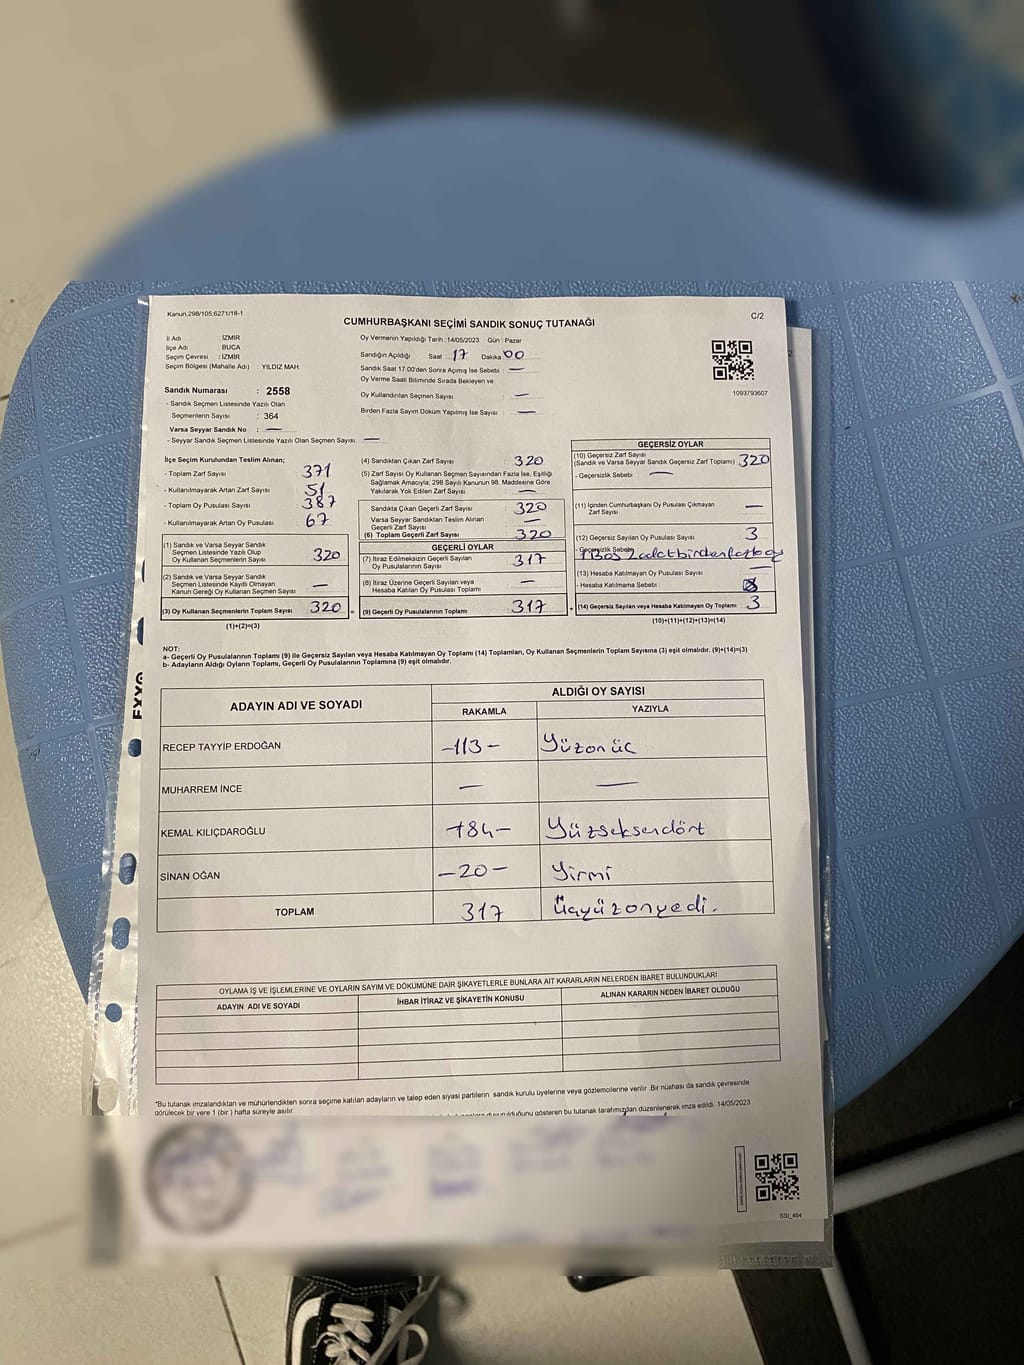 Kanun:298/105;6271/18-1
C/2
CUMHURBAŞKANI SEÇİMİ SANDIK SONUÇ TUTANAĞI
İl Adı : İZMİR
İlçe Adı : BUCA
Seçim Çevresi : İZMİR
Seçim Bölgesi (Mahalle Adı) : YILDIZ MAH
Sandık Numarası : 2558
- Sandık Seçmen Listesinde Yazılı Olan
Seçmenlerin Sayısı : 364
Varsa Seyyar Sandık No : —
- Seyyar Sandık Seçmen Listesinde Yazılı Olan Seçmen Sayısı : —
Oy Vermenin Yapıldığı Tarih : 14/05/2023 Gün : Pazar
Sandığın Açıldığı Saat : 17 Dakika 00
Sandık Saat 17.00'den Sonra Açımış İse Sebebi : —
Oy Verme Saati Bitiminde Sırada Bekleyen ve
Oy Kullandırılan Seçmen Sayısı : —
Birden Fazla Sayım Döküm Yapılmış İse Sayısı : —
1093793607
İlçe Seçim Kurulundan Teslim Alınan;
- Toplam Zarf Sayısı 371
- Kullanılmayarak Artan Zarf Sayısı 51
- Toplam Oy Pusulası Sayısı 387
- Kullanılmayarak Artan Oy Pusulası 67
(1) Sandık ve Varsa Seyyar Sandık
Seçmen Listesinde Yazılı Olup
Oy Kullanan Seçmenlerin Sayısı 320
(2) Sandık ve Varsa Seyyar Sandık
Seçmen Listesinde Kayıtlı Olmayan
Kanun Gereği Oy Kullanan Seçmen Sayısı —
(3) Oy Kullanan Seçmenlerin Toplam Sayısı 320 =
(1)+(2)=(3)
(4) Sandıktan Çıkan Zarf Sayısı : 320
(5) Zarf Sayısı Oy Kullanan Seçmen Sayısından Fazla İse, Eşitliği
Sağlamak Amacıyla, 298 Sayılı Kanunun 98. Maddesine Göre
Yakılarak Yok Edilen Zarf Sayısı : —
Sandıkta Çıkan Geçerli Zarf Sayısı : 320
Varsa Seyyar Sandıktan Teslim Alınan
Geçerli Zarf Sayısı : —
(6) Toplam Geçerli Zarf Sayısı : 320
GEÇERLİ OYLAR
(7) İtiraz Edilmeksizin Geçerli Sayılan
Oy Pusulasının Sayısı : 317
(8) İtiraz Üzerine Geçerli Sayılan veya
Hesaba Katılan Oy Pusulası Toplamı : —
(9) Geçerli Oy Pusulalarının Toplamı : 317 +
GEÇERSİZ OYLAR
(10) Geçersiz Zarf Sayısı
(Sandık ve Varsa Seyyar Sandık Geçersiz Zarf Toplamı) : 320
- Geçersizlik Sebebi : —
(11) İçinden Cumhurbaşkanı Oy Pusulası Çıkmayan
Zarf Sayısı : —
(12) Geçersiz Sayılan Oy Pusulası Sayısı : 3
- Geçersizlik Sebebi : 1 Boş 2 adet birden fazla oy
(13) Hesaba Katılmayan Oy Pusulası Sayısı : —
- Hesaba Katılmama Sebebi :
(14) Geçersiz Sayılan veya Hesaba Katılmayan Oy Toplamı : 3
(10)+(11)+(12)+(13)=(14)
NOT:
a- Geçerli Oy Pusulalarının Toplamı (9) ile Geçersiz Sayılan veya Hesaba Katılmayan Oy Toplamı (14) Toplamları, Oy Kullanan Seçmenlerin Toplam Sayısına (3) eşit olmalıdır. (9)+(14)=(3)
b- Adayların Aldığı Oyların Toplamı, Geçerli Oy Pusulalarının Toplamına (9) eşit olmalıdır.
ADAYIN ADI VE SOYADI
ALDIĞI OY SAYISI
RAKAMLA YAZIYLA
RECEP TAYYİP ERDOĞAN -113- Yüzonüç
MUHARREM İNCE — —
KEMAL KILIÇDAROĞLU -184- Yüzseksendört
SİNAN OĞAN -20- Yirmi
TOPLAM 317 Üçyüzonyedi.
OYLAMA İŞ VE İŞLEMLERİNE VE OYLARIN SAYIM VE DÖKÜMÜNE DAİR ŞİKAYETLERLE BUNLARA AİT KARARLARIN NELERDEN İBARET BULUNDUKLARI
ADAYIN ADI VE SOYADI İHBAR İTİRAZ VE ŞİKAYETİN KONUSU ALINAN KARARIN NEDEN İBARET OLDUĞU
*Bu tutanak imzalandıktan ve mühürlendikten sonra seçime katılan adayların ve talep eden siyasi partilerin sandık kurulu üyelerine veya gözlemcilerine verilir. Bir nüshası da sandık çevresinde
görülecek bir yere 1 (bir) hafta süreyle asılır.
olduğunu gösteren bu tutanak tarafımızdan düzenlenerek imza edildi. 14/05/2023
SSİ_404